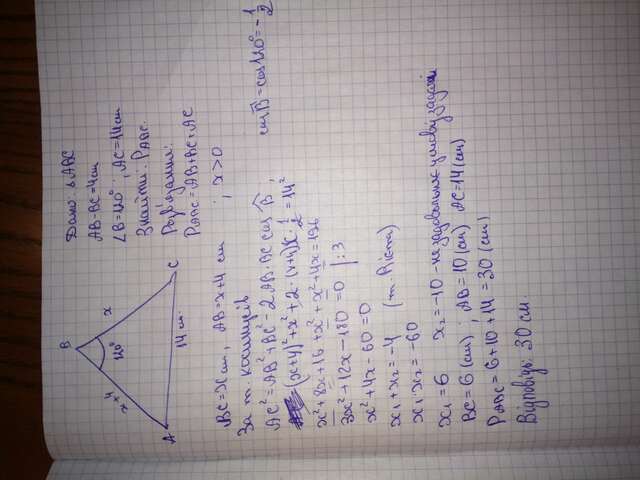 B
x+4
120°
x
A
14 см
C
Дано: ΔABC
AB-BC=4см
∠B=120°, AC=14см
Знайти: P_ABC.
Розв'язання:
P_ABC=AB+BC+AC
BC=x см, AB=x+4 см ; x>0
За т. косинусів
AC²=AB²+BC²-2AB·BC cos B; cos B=cos120°=-1/2
(x+4)²+x²+2·(x+4)x·1/2=14²
x²+8x+16+x²+x²+4x=196
3x²+12x-180=0 |:3
x²+4x-60=0
x₁+x₂=-4 (т. Вієта)
x₁·x₂=-60
x₁=6 x₂=-10 - не задовольняє умову задачі
BC=6(см); AB=10(см) AC=14(см)
P_ABC=6+10+14=30(см)
Відповідь: 30 см